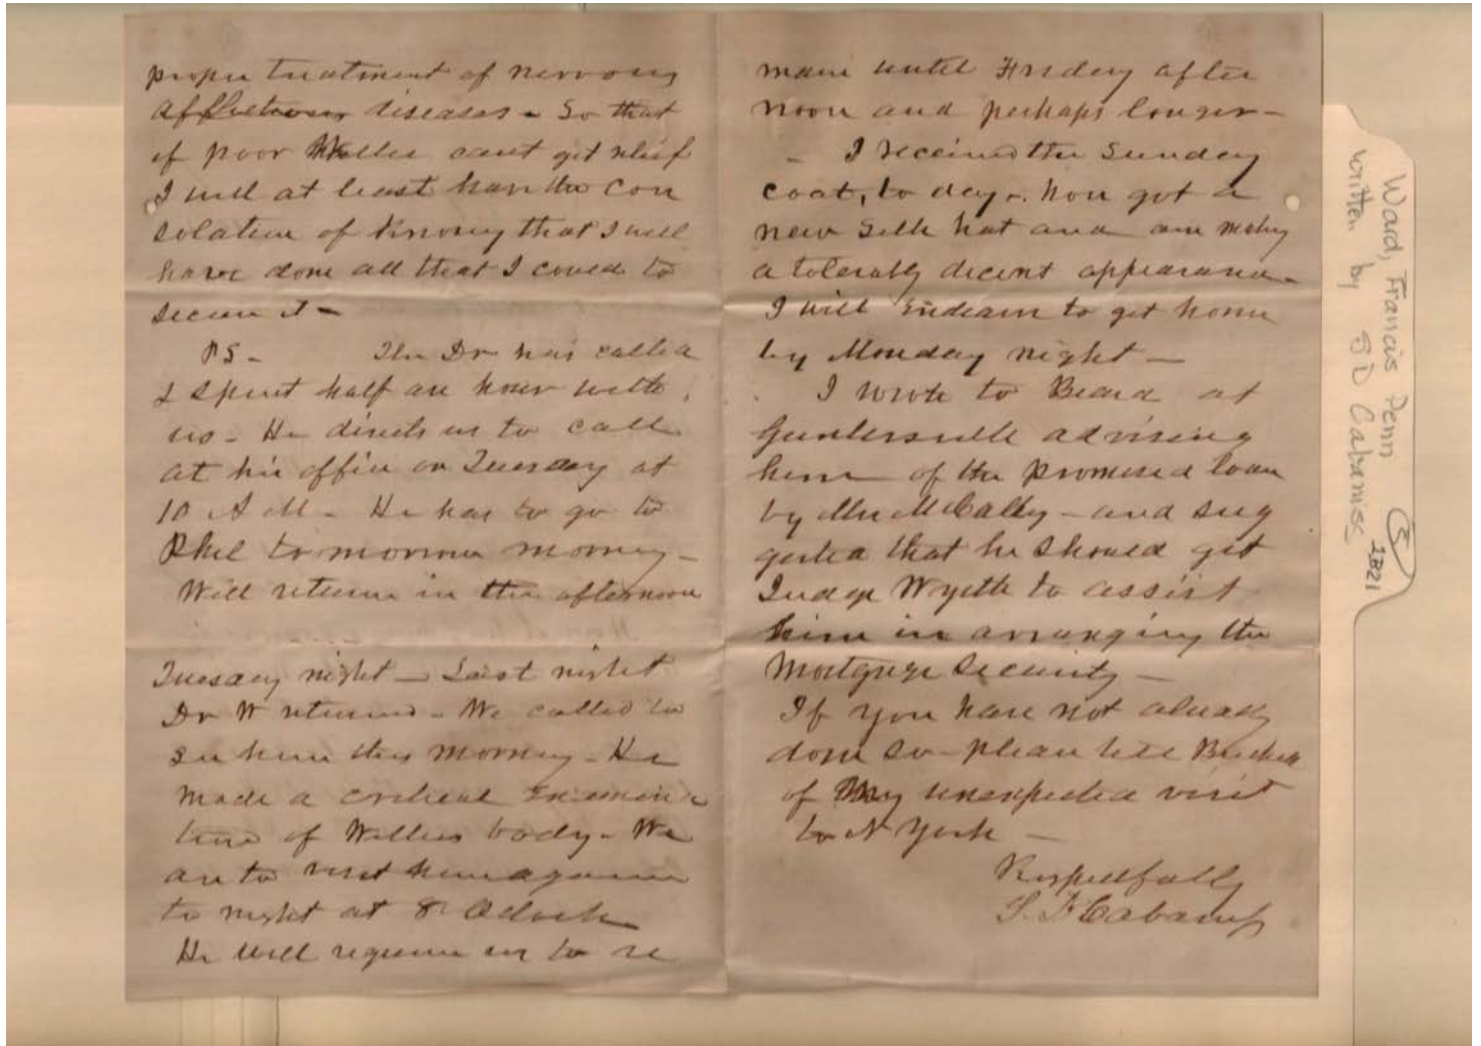 proper treatment of nervous
affections diseases - So that
if poor Willie cant get relief
I will at least have the con
solation of knowing that I will
have done all that I could to
secure it -
PS - The Dr has called
& spent half an hour with
us - He directs us to call
at his office on Tuesday at
10 A M - He has to go to
Phil to morrow morning -
Will return in the afternoon
Tuesday night - Last night
Dr W returned - We called to
see him this morning - He
made a critical examina
tion of Willies body - We
are to visit him again
to night at 8 Oclock
He will require us to re
main until Friday after
noon and perhaps longer -
- I received the Sunday
coat, to day - have got a
new silk hat and am making
a tolerably decent appearance -
I will endeavor to get home
by Monday night -
I wrote to Beard at
Guntersville advising
him of the promised loan
by Mrs McCalley - and sug
gested that he should get
Judge Wyeth to assist
him in arranging the
mortgage security -
If you have not already
done so - please tell
of my unexpected visit
to N York -
Respectfully
S. D Cabaniss
Ward, Francis Penn (3)
written by SD Cabaniss
1821